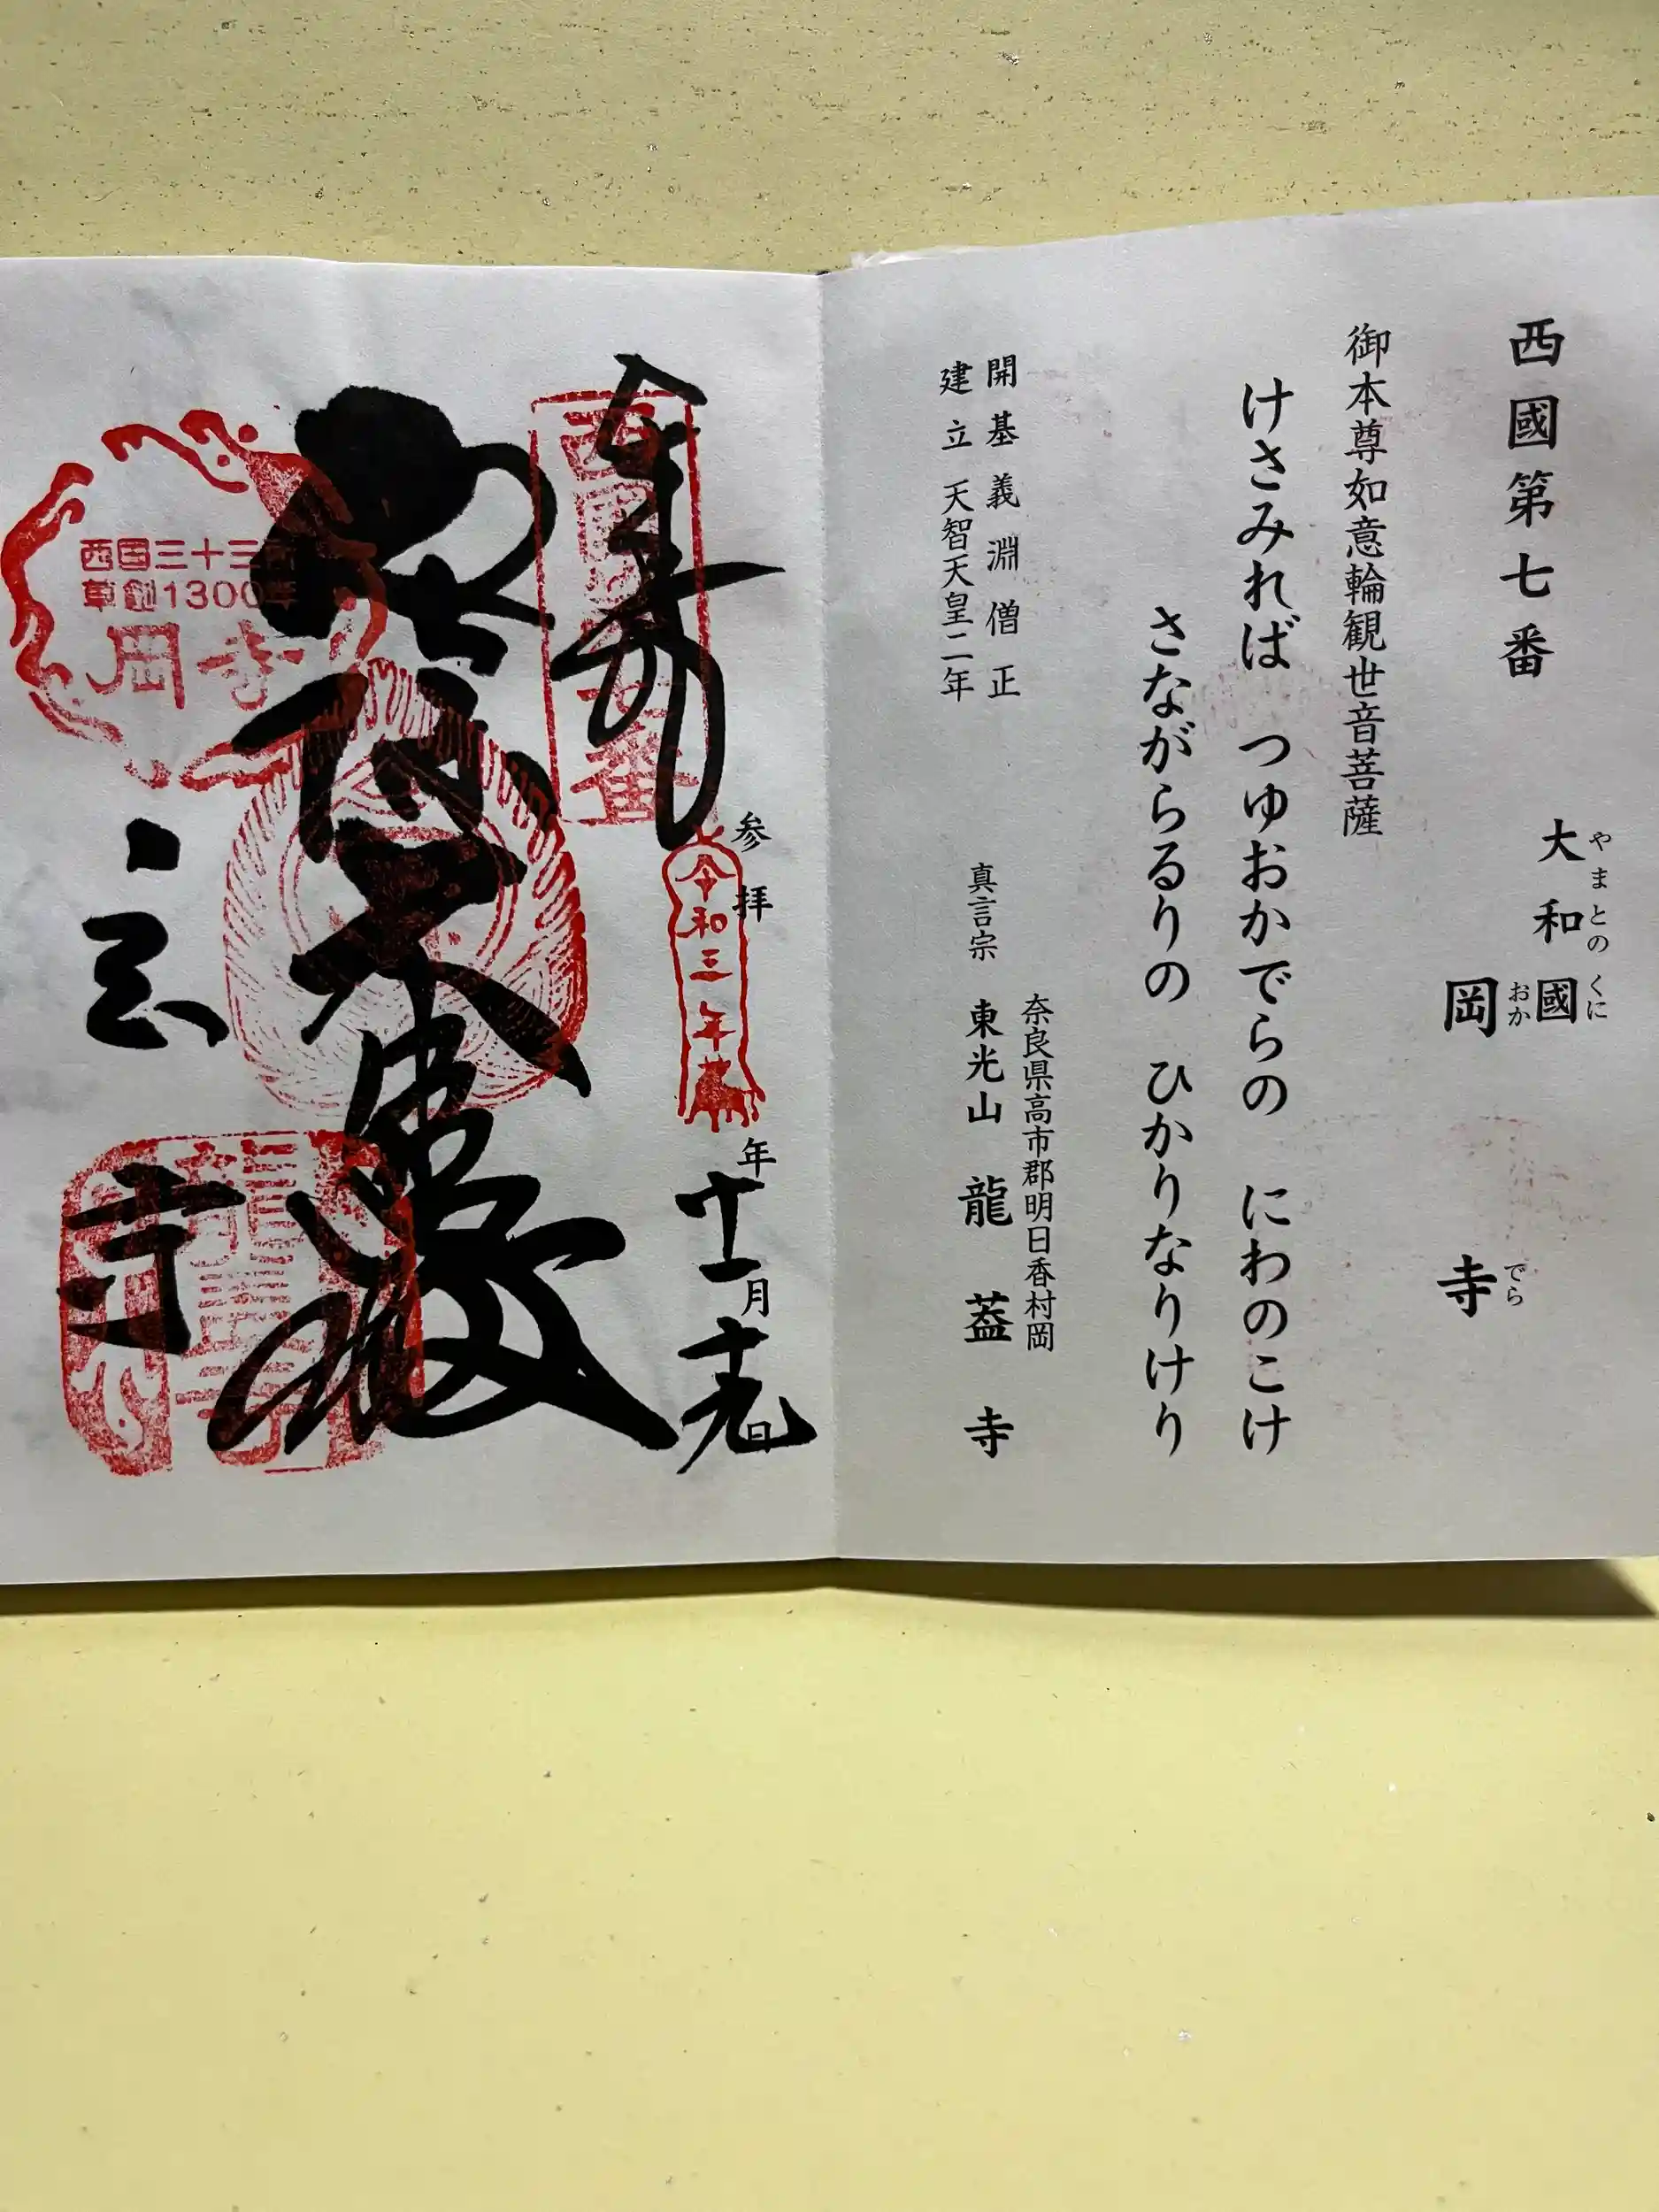 西國第七番
大和國
やまとのくに
岡寺
おかでら
御本尊如意輪観世音菩薩
けさみれば つゆおかでらの にわのこけ
さながらるりの ひかりなりけり
開基 義淵僧正
建立 天智天皇二年
奈良県高市郡明日香村岡
真言宗 東光山 龍蓋寺
奉拝
参拝
令和三年
年十一月十九日
西国
番
西国三十三所
草創1300年
岡寺
寺